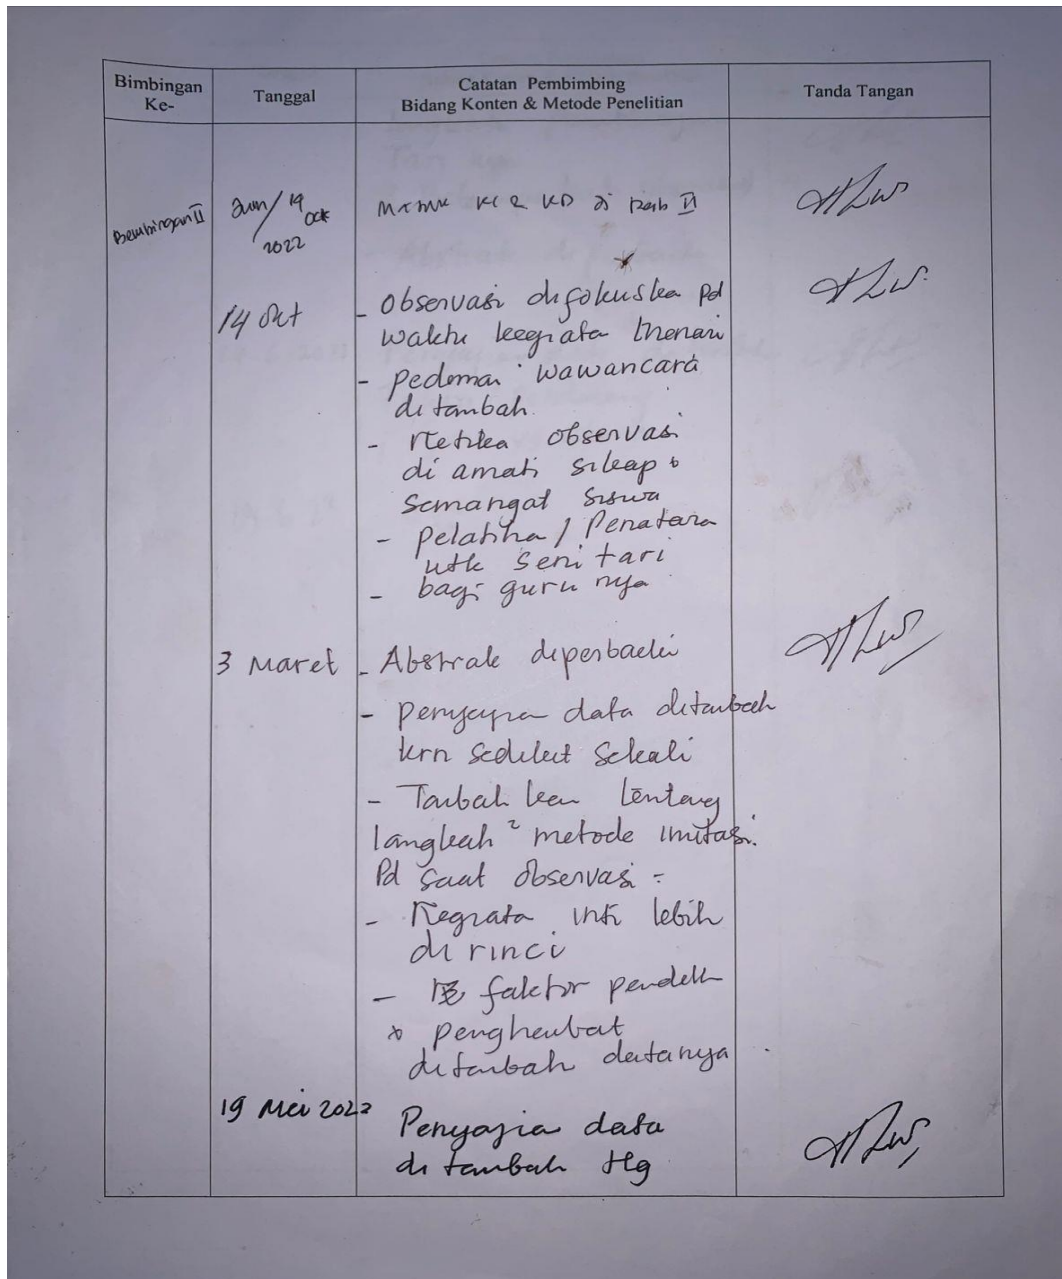 Bimbingan Ke-
Tanggal
Catatan Pembimbing
Bidang Konten & Metode Penelitian
Tanda Tangan
Bembingan II
Jum/19 Okt
2022
KI & KD di Bab II
14 Okt
- Observasi difokuska pd
waktu keegiata menari
- pedoman wawancara
di tambah
- Ketika observasi
di amati sikap &
semangat siswa
- pelatiha / Penatara
utk seni tari
- bagi guru nya
3 Maret
- Abstrak diperbaeki
- penyajian data ditambah
krn sedikit sekali
- Tambah kan tentang
langkah ² metode imitasi.
Pd saat observasi -
- Kegiata inti lebih
di rinci
- faktor pendek
& penghambat
ditambah datanya
19 Mei 2023
Penyajia data
di tambah ttg